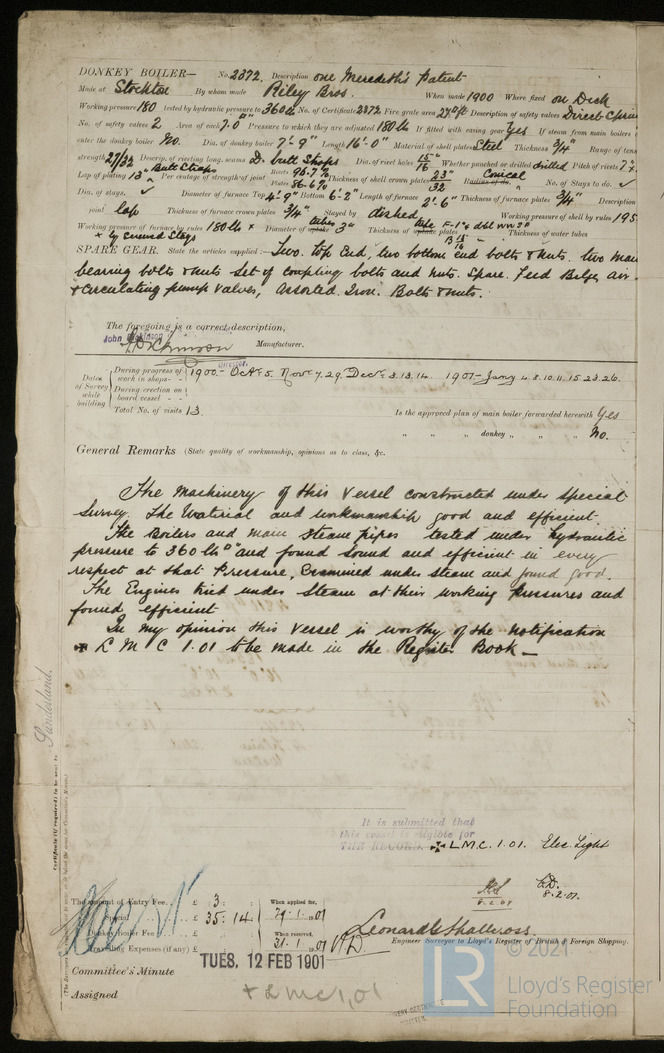 DONKEY BOILER— No. 2372. Description one Meredith's Patent
Made at Stockton By whom made Riley Bros. When made 1900 Where fixed on Deck
Working pressure 180 tested by hydraulic pressure to 360 lb No. of Certificate 2372 Fire grate area 27 Description of safety valves Direct Spring
No. of safety valves 2 Area of each 7.0" Pressure to which they are adjusted 180 lb If fitted with easing gear Yes If steam from main boilers
enter the donkey boiler No. Dia. of donkey boiler 7'-9" Length 16'-0" Material of shell plates Steel Thickness 3/4" Range of tens
strength 27/32 Descrip. of riveting long. seams D. butt Straps Dia. of rivet holes 15"/16 Whether punched or drilled drilled Pitch of rivets
Lap of plating 13" Butt Straps Per centage of strength of joint Rivets 96.7% Plates 86.6% Thickness of shell crown plates 23"/32 Conical Radius of do. No. of Stays to do. ✓
Dia. of stays. ✓ Diameter of furnace Top 4'-9" Bottom 6'-2" Length of furnace 2'-6" Thickness of furnace plates 3/4" Description
joint lap Thickness of furnace crown plates 3/4" Stayed by dished Working pressure of shell by rules 195
Working pressure of furnace by rules 180 lbs Diameter of tubes 3" Thickness of tube Thickness of water tubes
SPARE GEAR. State the articles supplied:— Two. top End, two bottom end bolts & nuts. two main
bearing bolts & nuts Set of coupling bolts and nuts. Spare. Feed Bilge air
& Circulating pump valves, Assorted Iron. Bolts & nuts.
The foregoing is a correct description,
John Dickinson
Manufacturer.
Director.
Dates of Survey while building
During progress of work in shops - - 1900.- Oct 5. Nov 7.29. Dec 3.13.14. 1901- Jany 4.8.10.11.15.23.26.
During erection on board vessel - - -
Total No. of visits 13
Is the approved plan of main boiler forwarded herewith Yes
" " " donkey " " " No.
General Remarks (State quality of workmanship, opinions as to class, &c.
The Machinery of this Vessel constructed under special
Survey. The Material and workmanship good and efficient.
The Boilers and main Steam pipes tested under hydraulic
pressure to 360 lb and found sound and efficient in every
respect at that Pressure, Examined under steam and found good.
The Engines tried under Steam at their working pressures and
found efficient
In my opinion this Vessel is worthy of the notification
✠ L M C 1.01 to be made in the Register Book —
Sunderland.
Certificate (if required) to be sent to
It is submitted that
this vessel is eligible for
THE RECORD ✠ L.M.C. 1.01. Elec. Light
8.2.01
The amount of Entry Fee. . £ 3 : When applied for,
Special £ 35 : 14 29.1.1901
Donkey Boiler Fee £ When received,
Travelling Expenses (if any) £ 31.1.1901
Leonard Shallcross.
Engineer Surveyor to Lloyd's Register of British & Foreign Shipping.
TUES. 12 FEB 1901
Committee's Minute
Assigned + LMC 1,01
© 2021
LR
Lloyd's Register
Foundation